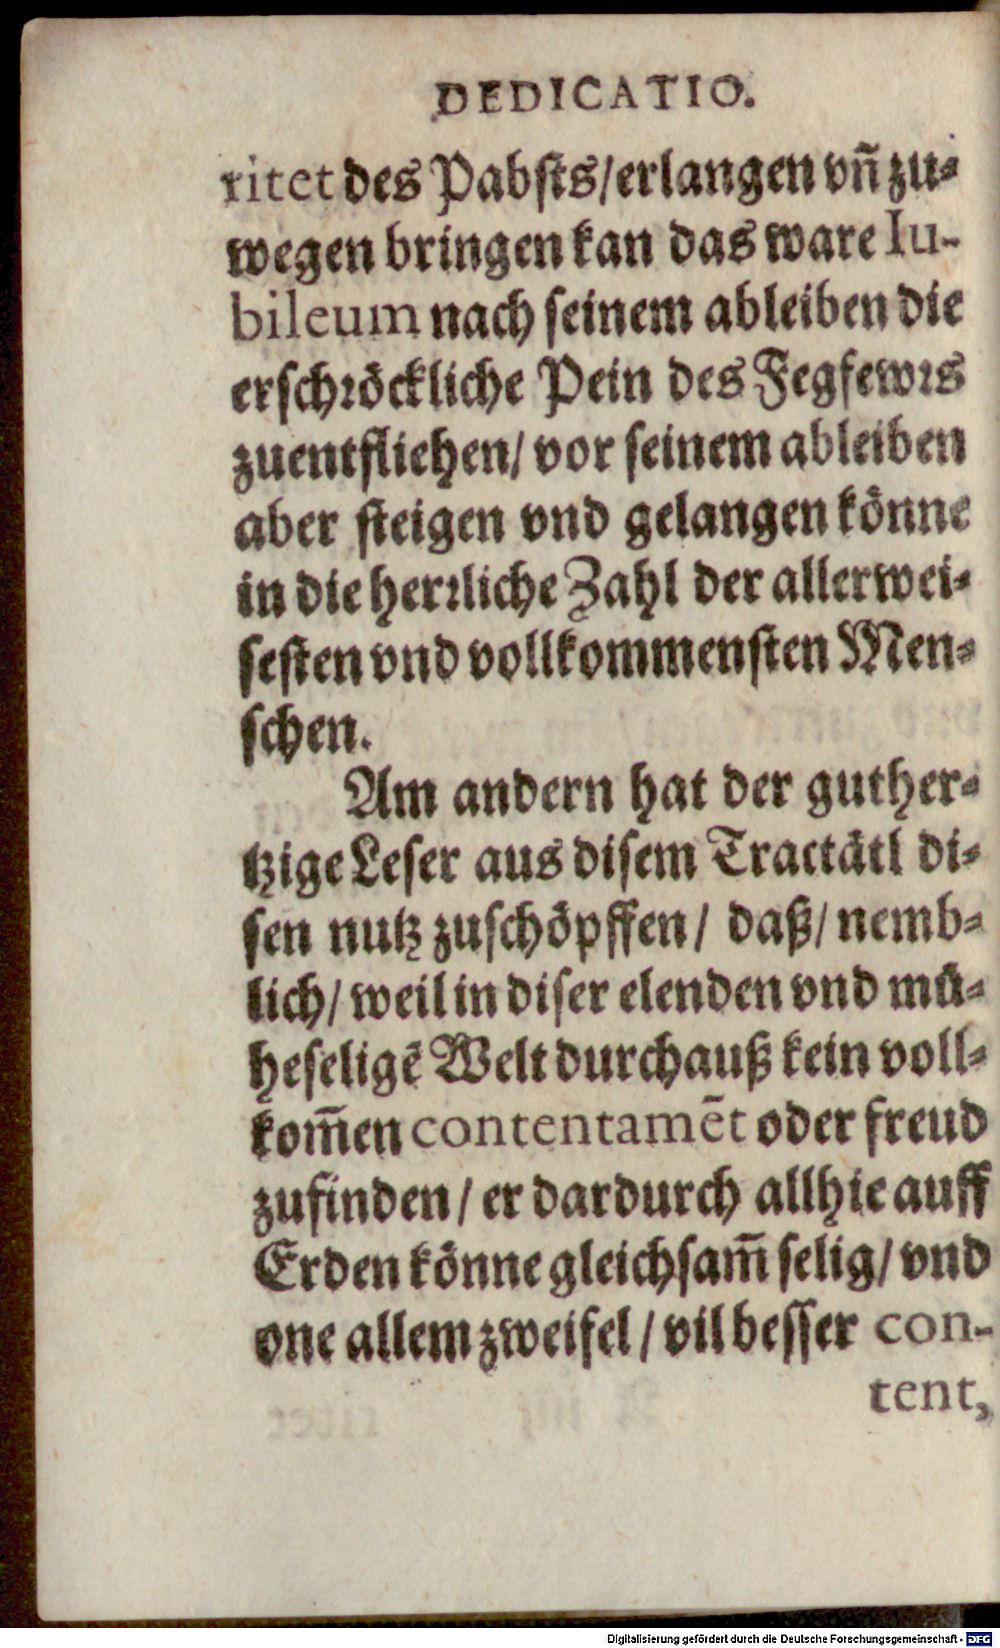 DEDICATIO.
ritet des Pabsts/erlangen vñ zu-
wegen bringen kan das ware Iu-
bileum nach seinem ableiben die
erschröckliche Pein des Fegfewrs
zuentfliehen/ vor seinem ableiben
aber steigen vnd gelangen könne
in die herrliche Zahl der allerwei-
sesten vnd vollkommensten Men-
schen.
Am andern hat der guther-
tzige Leser aus disem Tractätl di-
sen nutz zuschöpffen/ daß/ nemb-
lich/ weil in diser elenden vnd mü-
heseligẽ Welt durchauß kein voll-
kom̃en contentamẽt oder freud
zufinden/ er dardurch allhie auff
Erden könne gleichsam̃ selig/ vnd
one allem zweifel/ vil besser con-
tent,
Digitalisierung gefördert durch die Deutsche Forschungsgemeinschaft - DFG